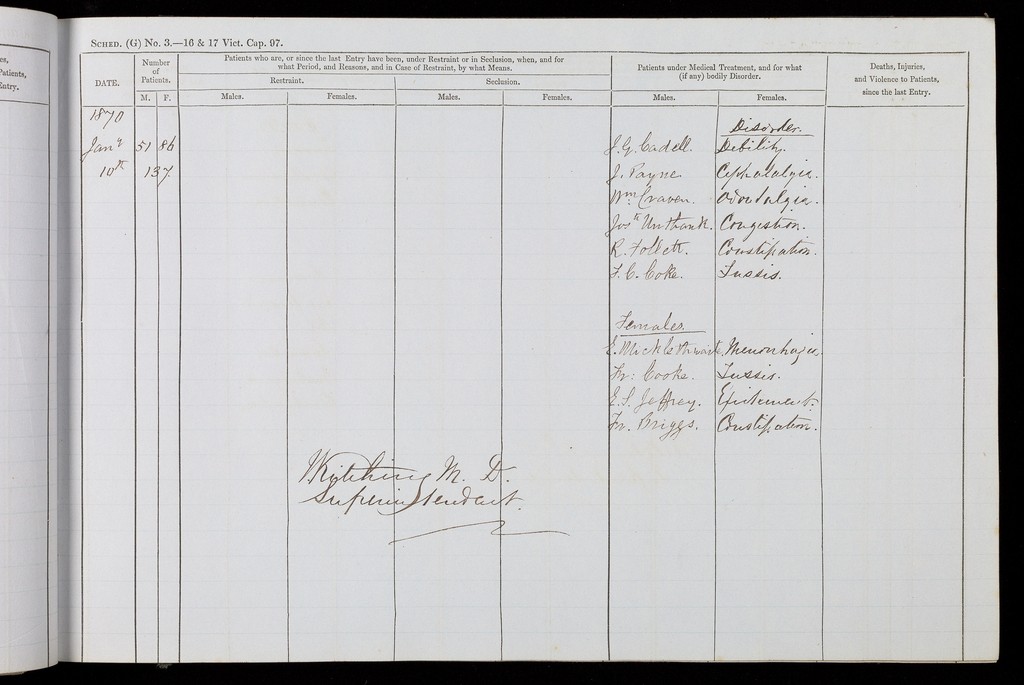 es,
Patients,
Entry.
SCHED. (G) No. 3.—16 & 17 Vict. Cap. 97.
DATE.
Number
of
Patients.
M. F.
Patients who are, or since the last Entry have been, under Restraint or in Seclusion, when, and for
what Period, and Reasons, and in Case of Restraint, by what Means.
Restraint. Seclusion.
Males. Females. Males. Females.
Patients under Medical Treatment, and for what
(if any) bodily Disorder.
Males. Females.
Deaths, Injuries,
and Violence to Patients,
since the last Entry.
1870
Disorder.
Jany 51 86 J. G. Cadell. Debility.
10th 137. J. Payne Cephalalgia.
Wm Craven. Odontalgia.
Josh Unthank. Congestion.
R. Follett. Constipation.
F. C. Coke. Tussis.
Females
E. Micklethwaite. Menorrhagia.
Fr: Cooke. Tussis.
E. S. Jeffrey. Excitement.
Fr. Briggs. Constipation.
Kitching M. D.
Superintendent.